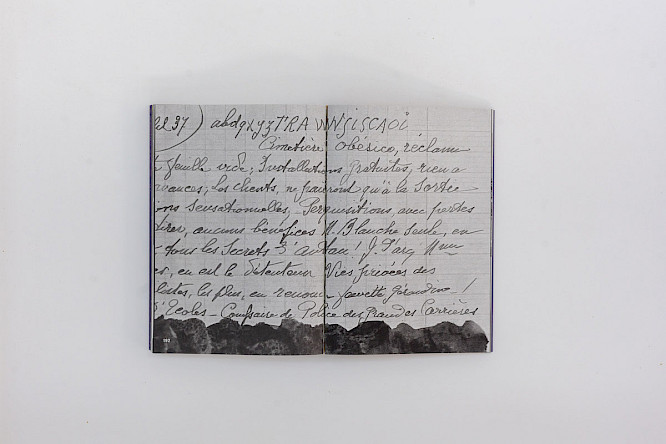 37) abdqxyzTRAWNSISCAOi
Cimetière obésico, réclame
feuille vide; Installations gratuites, rien a
vances; Les clients, ne paieront qu'à la Sortie
ons sensationnelles, Perquisitions, avec pertes
tirer, aucuns bénéfices M. Blanche Seule, en
tous les Secrets d'autan! J. d'arq Mme
en est le détenteur Vies, privées des
lestes, les plus, en renom - fauvette Girondine!
d'Ecoles - Comissaire de Police des grandes Carrières
192